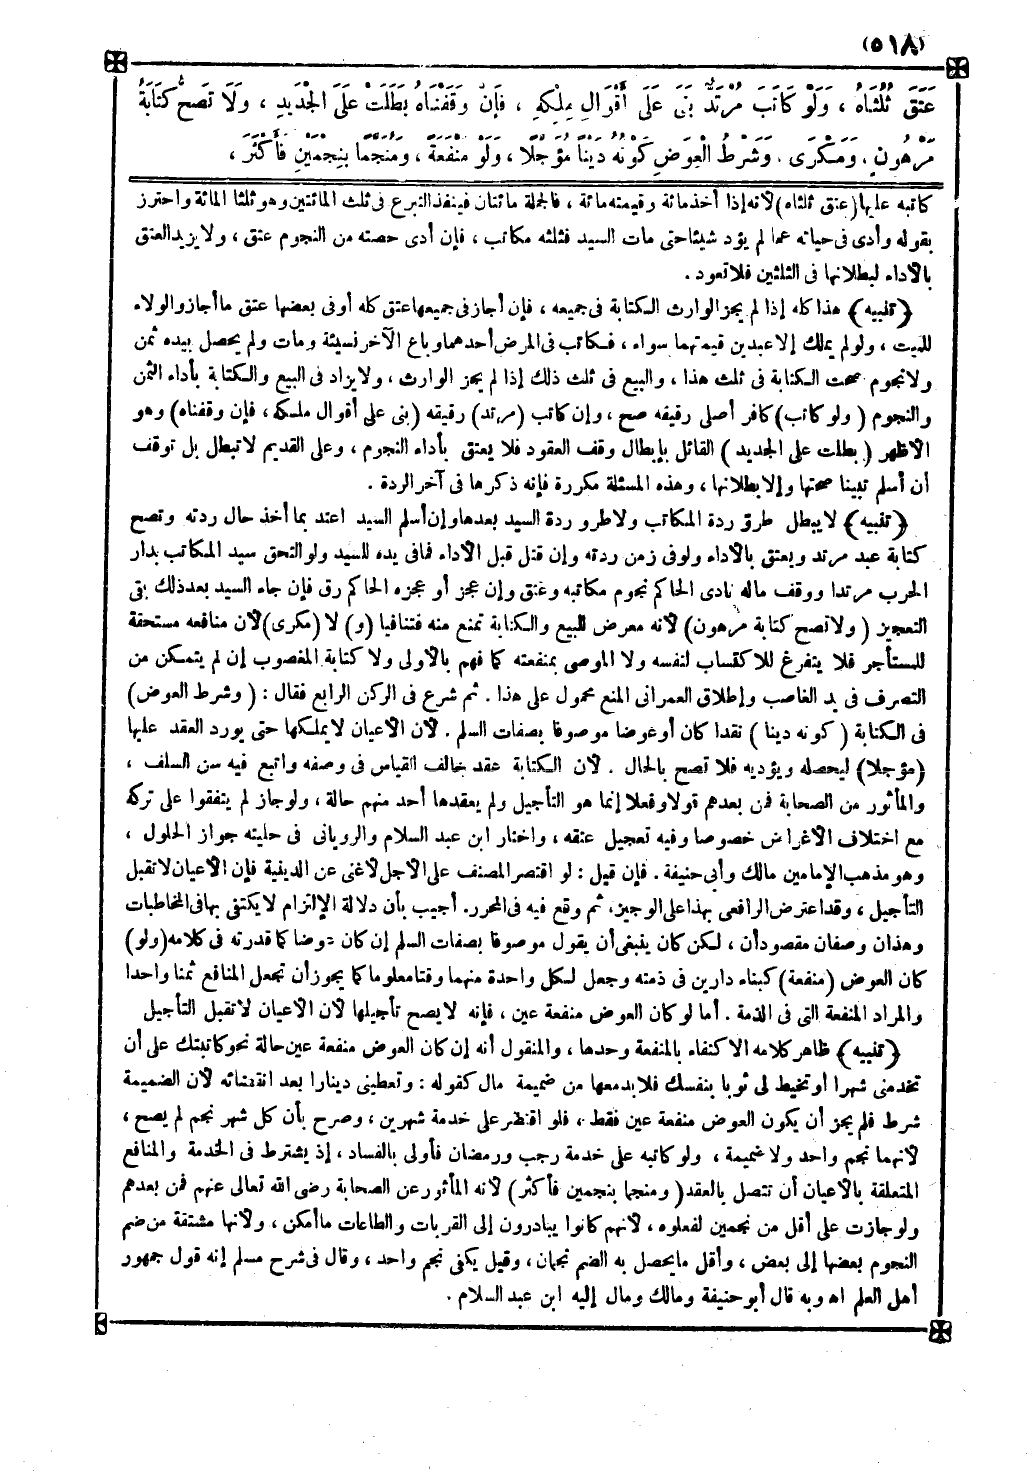 (٥١٨)
عَتَقَ ثُلُثَاهُ ، وَلَوْ كَاتَبَ مُرْتَدٌّ بَنَى عَلَى أَقْوَالِ مِلْكِهِ ، فَإِنْ وَقَفْنَاهُ بَطَلَتْ عَلَى الْجَدِيدِ ، وَلَا تَصِحُّ كِتَابَةُ
مَرْهُونٍ ، وَمُكْرًى ، وَشَرْطُ الْعِوَضِ كَوْنُهُ دَيْنًا مُؤَجَّلًا ، وَلَوْ مَنْفَعَةً ، وَمُنَجَّمًا بِنَجْمَيْنِ فَأَكْثَرَ ،
كاتبه عليها (عتق ثلثاه) لأنه إذا أخذ مائة وقيمته مائة ، فالجملة مائتان فينفذ التبرع فى ثلث المائتين وهو ثلثا المائة واحترز
بقوله وأدى فى حياته عما لم يؤد شيئا حتى مات السيد فثلثه مكاتب ، فإن أدى حصته من النجوم عتق ، ولا يزيد العتق
بالأداء لبطلانها فى الثلثين فلا تعود .
(تنبيه) هذا كله إذا لم يجز الوارث الكتابة فى جميعه ، فإن أجاز فى جميعها عتق كله أو فى بعضها عتق ما أجاز والولاء
للميت ، ولو لم يملك إلا عبدين قيمتهما سواء ، فكاتب فى المرض أحدهما وباع الآخر نسيئة ومات ولم يحصل بيده ثمن
ولا نجوم صحت الكتابة فى ثلث هذا ، والبيع فى ثلث ذلك إذا لم يجز الوارث ، ولا يزاد فى البيع والكتابة بأداء الثمن
والنجوم (ولو كاتب) كافر أصلى رقيقه صح ، وإن كاتب (مرتد) رقيقه (بنى على أقوال ملكه ، فإن وقفناه) وهو
الأظهر (بطلت على الجديد) القائل بإبطال وقف العقود فلا يعتق بأداء النجوم ، وعلى القديم لا تبطل بل توقف
أن أسلم تبينا صحتها وإلا بطلانها ، وهذه المسئلة مكررة فإنه ذكرها فى آخر الردة .
(تنبيه) لا يبطل طرق ردة المكاتب ولا طرو ردة السيد بعدها وإن أسلم السيد اعتد بما أخذ حال ردته وتصح
كتابة عبد مرتد ويعتق بالأداء ولو فى زمن ردته وإن قتل قبل الأداء فما فى يده للسيد ولو التحق سيد المكاتب بدار
الحرب مرتدا ووقف ماله نادى الحاكم نجوم مكاتبه وعتق وإن عجز أو عجزه الحاكم رق فإن جاء السيد بعد ذلك بقى
التعجيز (ولا تصح كتابة مرهون) لأنه معرض للبيع والكتابة تمنع منه فتنافيا (و) لا (مكرى) لأن منافعه مستحقة
للمستأجر فلا يتفرغ للاكتساب لنفسه ولا الموصى بمنفعته كما فهم بالأولى ولا كتابة المغصوب إن لم يتمكن من
التصرف فى يد الغاصب وإطلاق العمرانى المنع محمول على هذا . ثم شرع فى الركن الرابع فقال : (وشرط العوض)
فى الكتابة (كونه دينا) نقدا كان أو عوضا موصوفا بصفات السلم . لأن الأعيان لا يملكها حتى يورد العقد عليها
(مؤجلا) ليحصله ويؤديه فلا تصح بالحال . لأن الكتابة عقد خالف القياس فى وصفه واتبع فيه سنن السلف ،
والمأثور من الصحابة فمن بعدهم قولا وفعلا إنما هو التأجيل ولم يعقدها أحد منهم حالة ، ولو جاز لم يتفقوا على تركه
مع اختلاف الأغراض خصوصا وفيه تعجيل عتقه ، واختار ابن عبد السلام والرويانى فى حليته جواز الحلول ،
وهو مذهب الإمامين مالك وأبى حنيفة . فإن قيل : لو اقتصر المصنف على الأجل لأغنى عن الدينية فإن الأعيان لا تقبل
التأجيل ، وقد اعترض الرافعى بهذا على الوجيز ، ثم وقع فيه فى المحرر . أجيب بأن دلالة الإلتزام لا يكتفى بها فى المخاطبات
وهذان وصفان مقصودان ، لكن كان ينبغى أن يقول موصوفا بصفات السلم إن كان عوضا كما قدرته فى كلامه (ولو)
كان العوض (منفعة) كبناء دارين فى ذمته وجعل لكل واحدة منهما وقتا معلوما كما يجوز أن تجعل المنافع ثمنا واحدا
والمراد المنفعة التى فى الذمة . أما لو كان العوض منفعة عين ، فإنه لا يصح تأجيلها لأن الأعيان لا تقبل التأجيل
(تنبيه) ظاهر كلامه الاكتفاء بالمنفعة وحدها ، والمنقول أنه إن كان العوض منفعة عين حالة نحو كاتبتك على أن
تخدمنى شهرا أو تخيط لى ثوبا بنفسك فلا بد معها من ضميمة مال كقوله : وتعطينى دينارا بعد انقضائه لأن الضميمة
شرط فلم يجز أن يكون العوض منفعة عين فقط ، فلو اقتصر على خدمة شهرين ، وصرح بأن كل شهر نجم لم يصح ،
لأنهما نجم واحد ولا ضميمة ، ولو كاتبه على خدمة رجب ورمضان فأولى بالفساد ، إذ يشترط فى الخدمة والمنافع
المتعلقة بالأعيان أن تتصل بالعقد (ومنجما بنجمين فأكثر) لأنه المأثور عن الصحابة رضى الله تعالى عنهم فمن بعدهم
ولو جازت على أقل من نجمين لفعلوه ، لأنهم كانوا يبادرون إلى القربات والطاعات ما أمكن ، ولأنها مشتقة من ضم
النجوم بعضها إلى بعض ، وأقل ما يحصل به الضم نجمان ، وقيل يكفى نجم واحد ، وقال فى شرح مسلم إنه قول جمهور
أهل العلم اه وبه قال أبو حنيفة ومالك ومال إليه ابن عبد السلام .